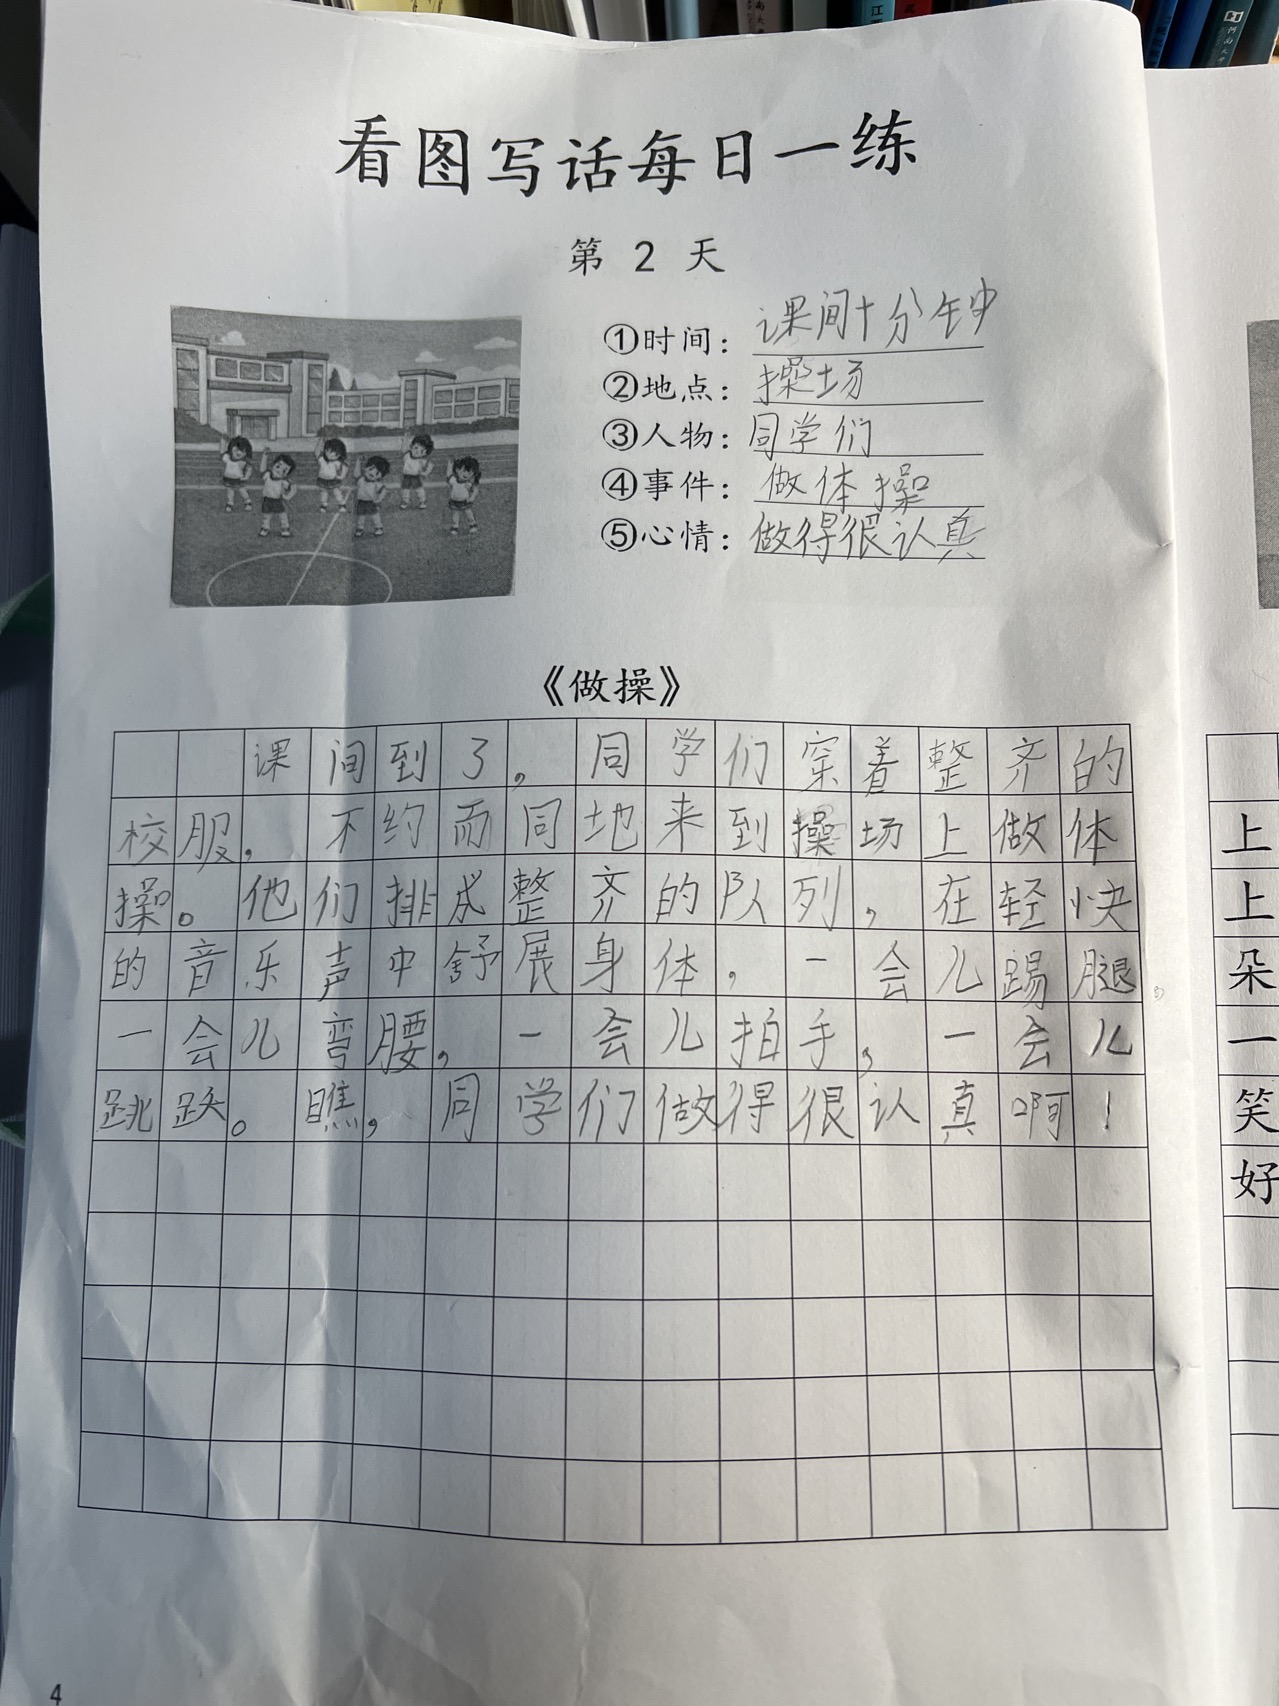 看图写话每日一练
第 2 天
①时间：课间十分钟
②地点：操场
③人物：同学们
④事件：做体操
⑤心情：做得很认真
《做操》
课间到了，同学们穿着整齐的
校服，不约而同地来到操场上做体
操。他们排成整齐的队列，在轻快
的音乐声中舒展身体，一会儿踢腿，
一会儿弯腰，一会儿拍手，一会儿
跳跃。瞧，同学们做得很认真啊！
4
上
上
朵
一
笑
好